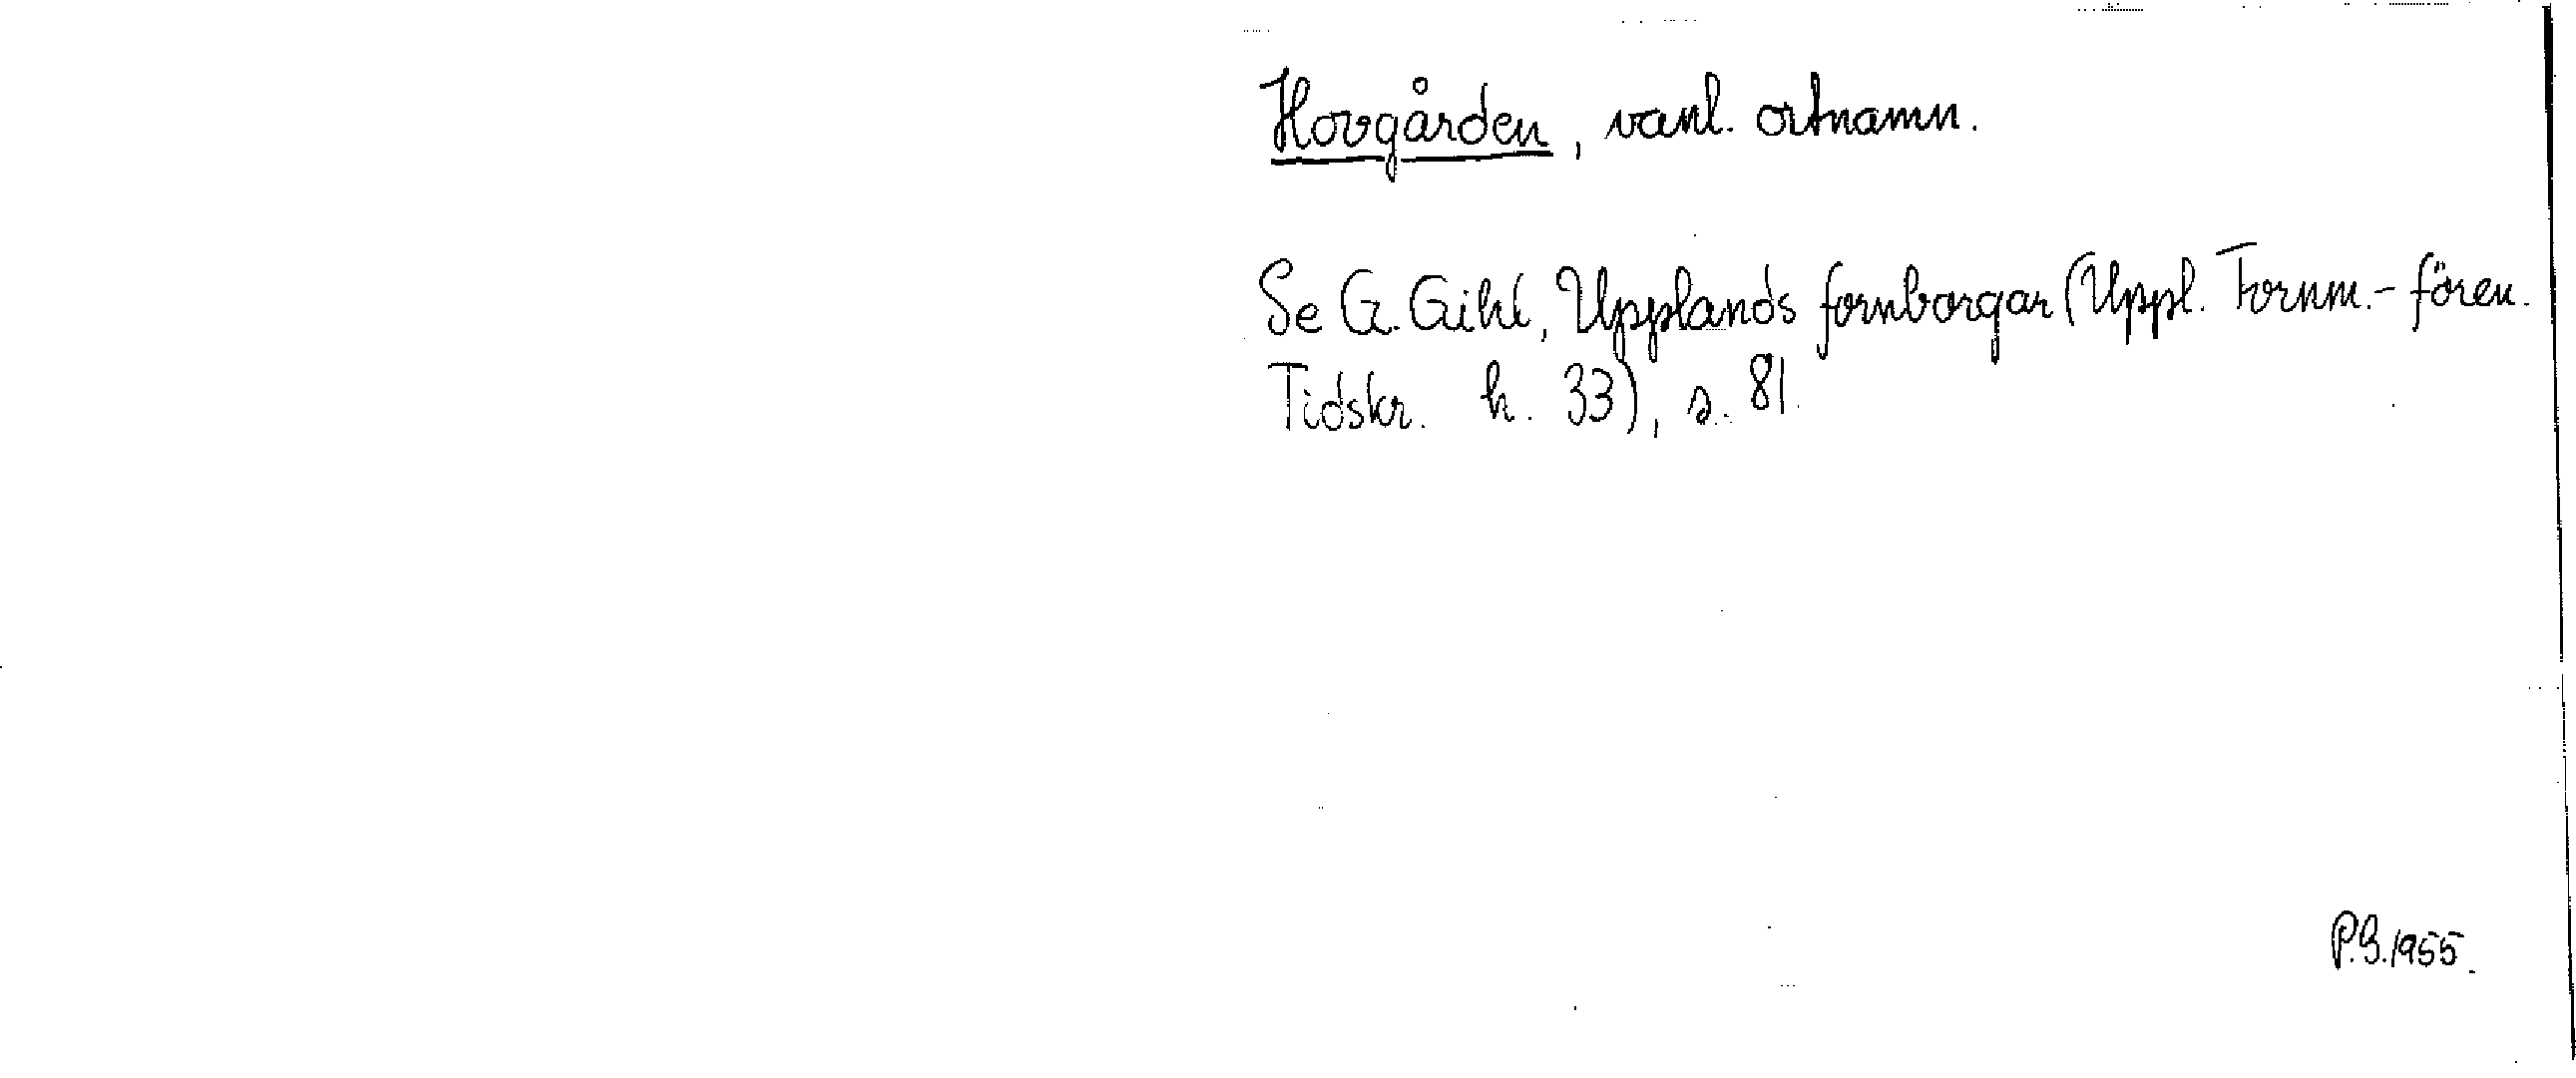 Hovgården, vanl. ortnamn.
Se G. Gihl, Upplands fornborgar (Uppl. Fornm.-fören.
Tidskr. h. 33), s. 81.
P.B. 1955.